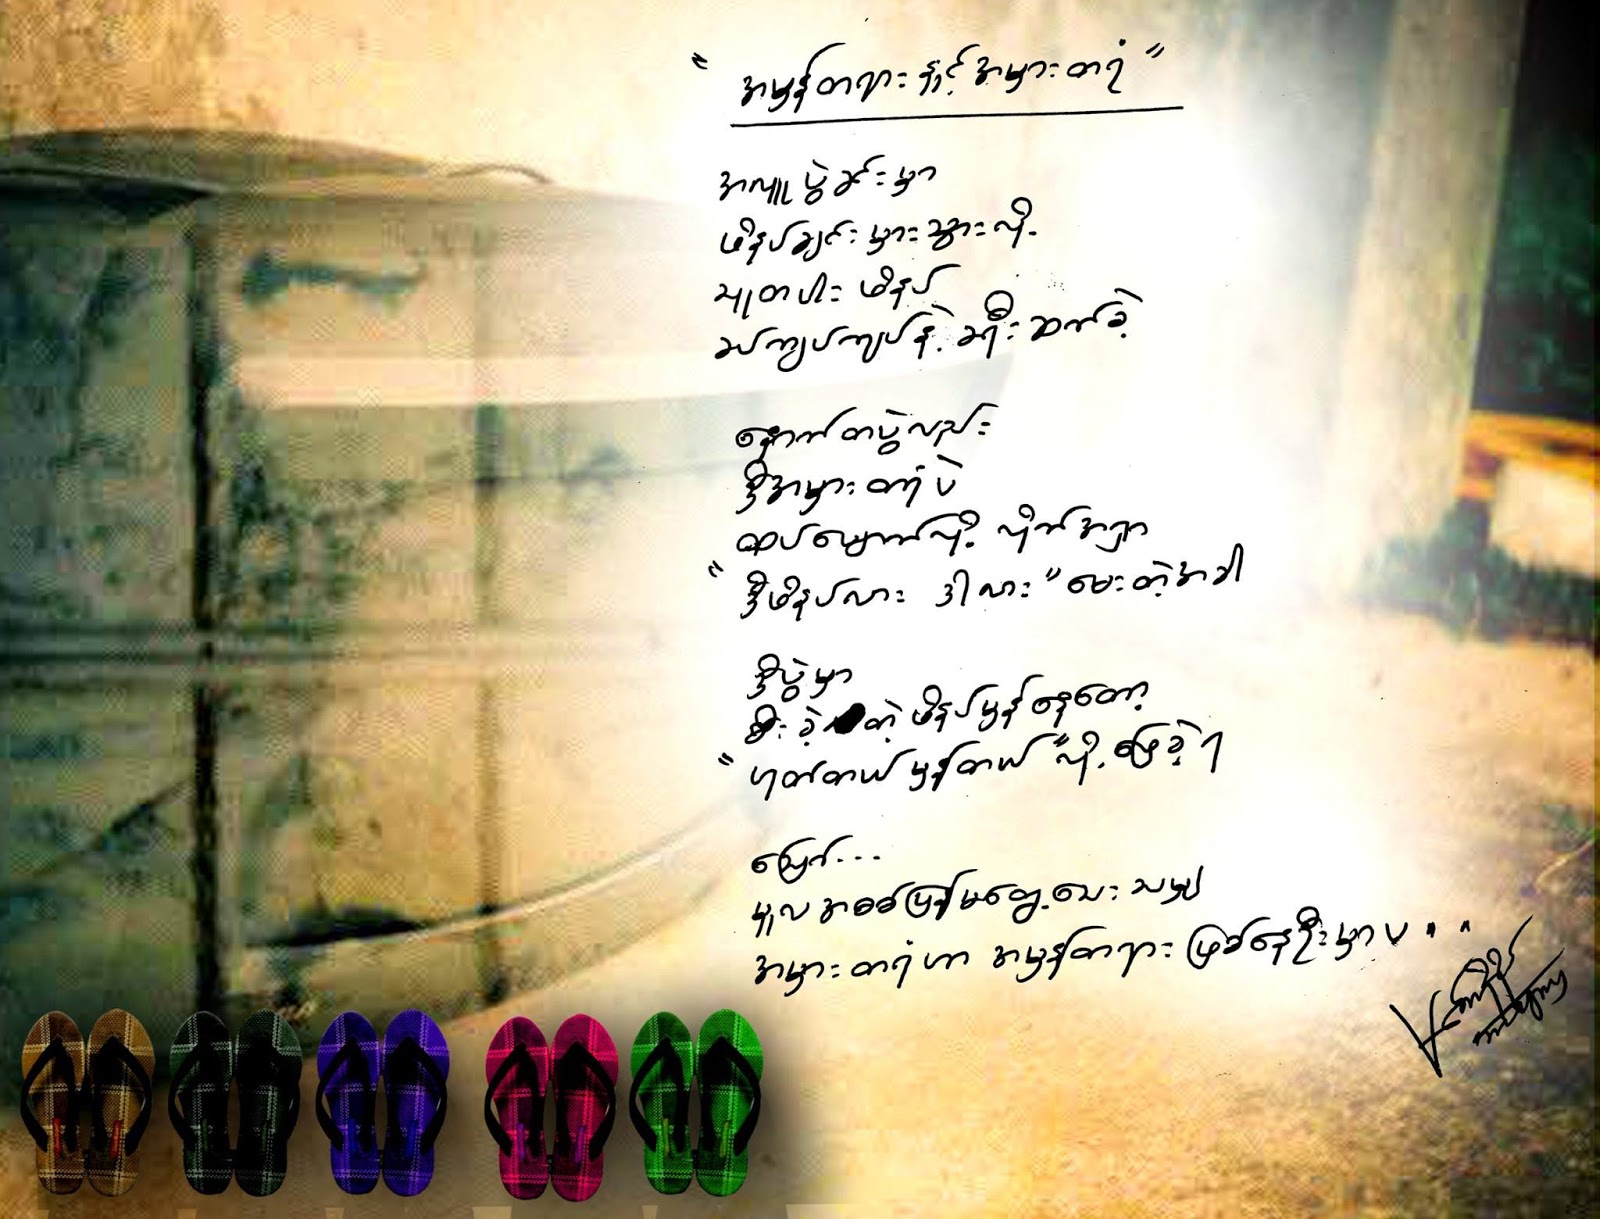 "အမှန်တရား နှင့် အမှားတရံ"
အလှူပွဲခင်းမှာ
ဖိနပ်ချင်း မှားသွားလို့
သူတပါး ဖိနပ်
ခပ်ကျပ်ကျပ်နဲ့ ခရီးဆက်ခဲ့
နောက်တပွဲလည်း
ဒီအမှားတရံပဲ
ထပ်ပျောက်လို့ လိုက်အရှာ
"ဒီဖိနပ်လား ဒါလား" မေးတဲ့အခါ
ဒီပွဲမှာ
စီးခဲ့တဲ့ ဖိနပ်မှန်နေတော့
"ဟုတ်တယ် မှန်တယ်" လို့ ဖြေခဲ့ရ
သြော်...
မူလအစစ်ပြန်မတွေ့သေးသမျှ
အမှားတရံဟာ အမှန်တရား ဖြစ်နေဦးမှာပ...